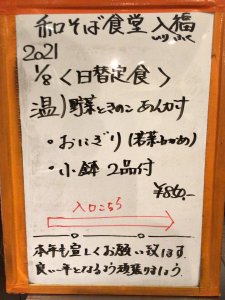 和そば食堂 入福
いり ふく
2021
1/8 〈日替定食〉
温)野菜ときのこあんかけ
・おにぎり(若菜わかめ)
・小鉢 2品付
¥860,-
入口こちら
本年も宜しくお願い致します
良い一年となるよう頑張りましょう